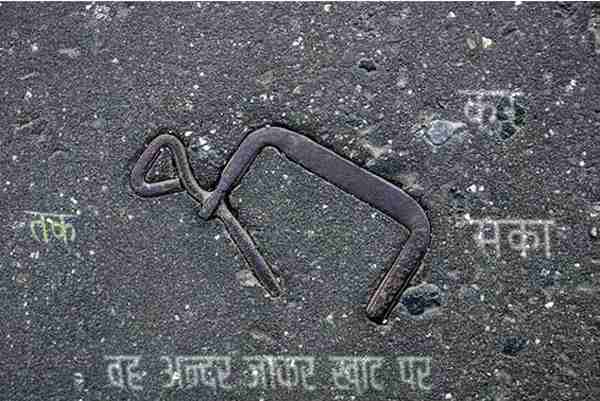 कब
तक
सका
वह अन्दर जाकर खाट पर